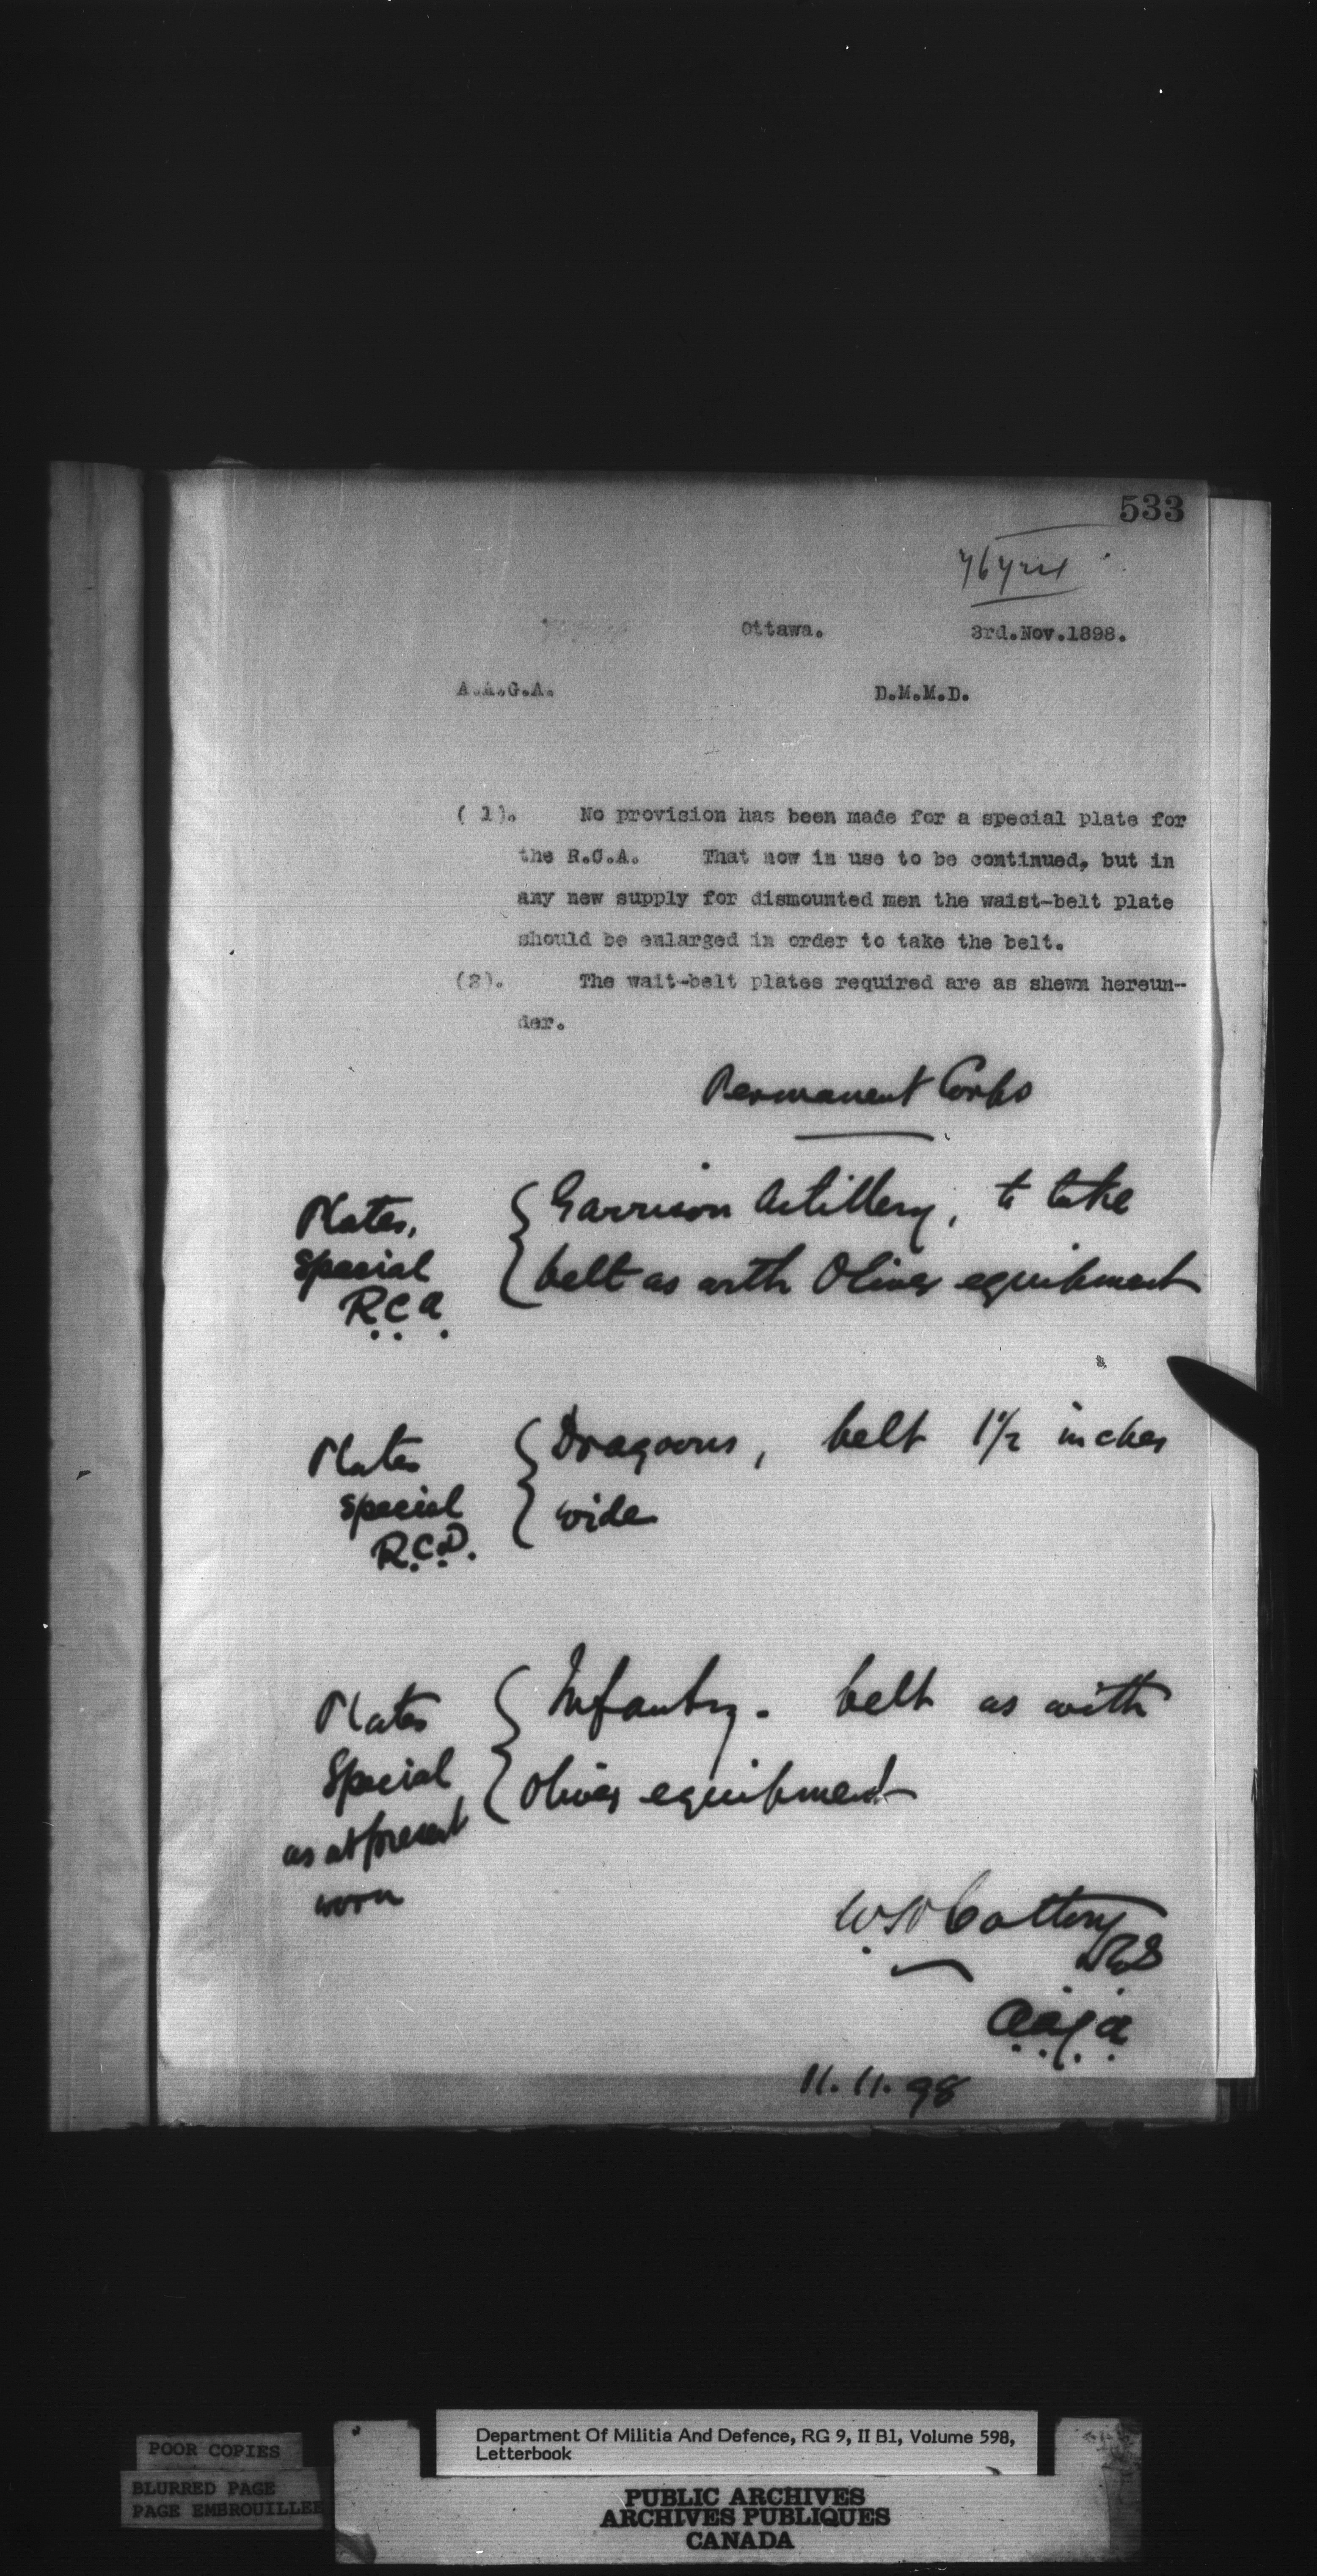 533
Ottawa. 3rd.Nov.1898.
A.A.G.A. D.M.M.D.
( 1). No provision has been made for a special plate for
the R.C.A. That now in use to be continued, but in
any new supply for dismounted men the waist-belt plate
should be enlarged in order to take the belt.
(2). The wait-belt plates required are as shewn hereun-
der.
Permanent Corps
Plates, special R.C.A. { Garrison Artillery, to take
belt as with Oliver equipment
Plates special R.C.D. { Dragoons, belt 1 1/2 inches
wide
Plates Special as at present worn { Infantry. belt as with
Oliver equipment
A.A.G.A.
11.11.98
POOR COPIES
BLURRED PAGE
PAGE EMBROUILLEE
Department Of Militia And Defence, RG 9, II B1, Volume 598,
Letterbook
PUBLIC ARCHIVES
ARCHIVES PUBLIQUES
CANADA